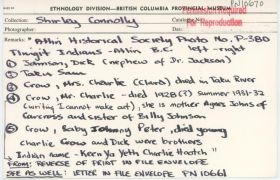 PN10670
ETHNOLOGY DIVISION—BRITISH COLUMBIA PROVINCIAL MUSEUM
Required
For Reproduction
Collection Shirley Connolly
Remarks: * Atlin Historical Society Photo No. P-380
Tlingit Indians - Atlin B.C. left - right
① Johnson, Dick (nephew of Dr. Jackson)
② Taku Sam
③ Crow, Mrs. Charlie (Clara) died in Taku River
④ Crow, Mr. Charlie - died 192? (?) summer 1931-32
(writing I cannot make out), she is mother Agnes Johns of
Carcross and sister of Billy Johnson
⑤ Crow, Baby Johnny Peter, died young
Charlie Crow and Dick were brothers
Indian name - Keen Ya Yeth Charlie Hootch "
FROM: REVERSE OF PRINT IN FILE ENVELOPE
SEE AS WELL: LETTER IN FILE ENVELOPE PN 10661